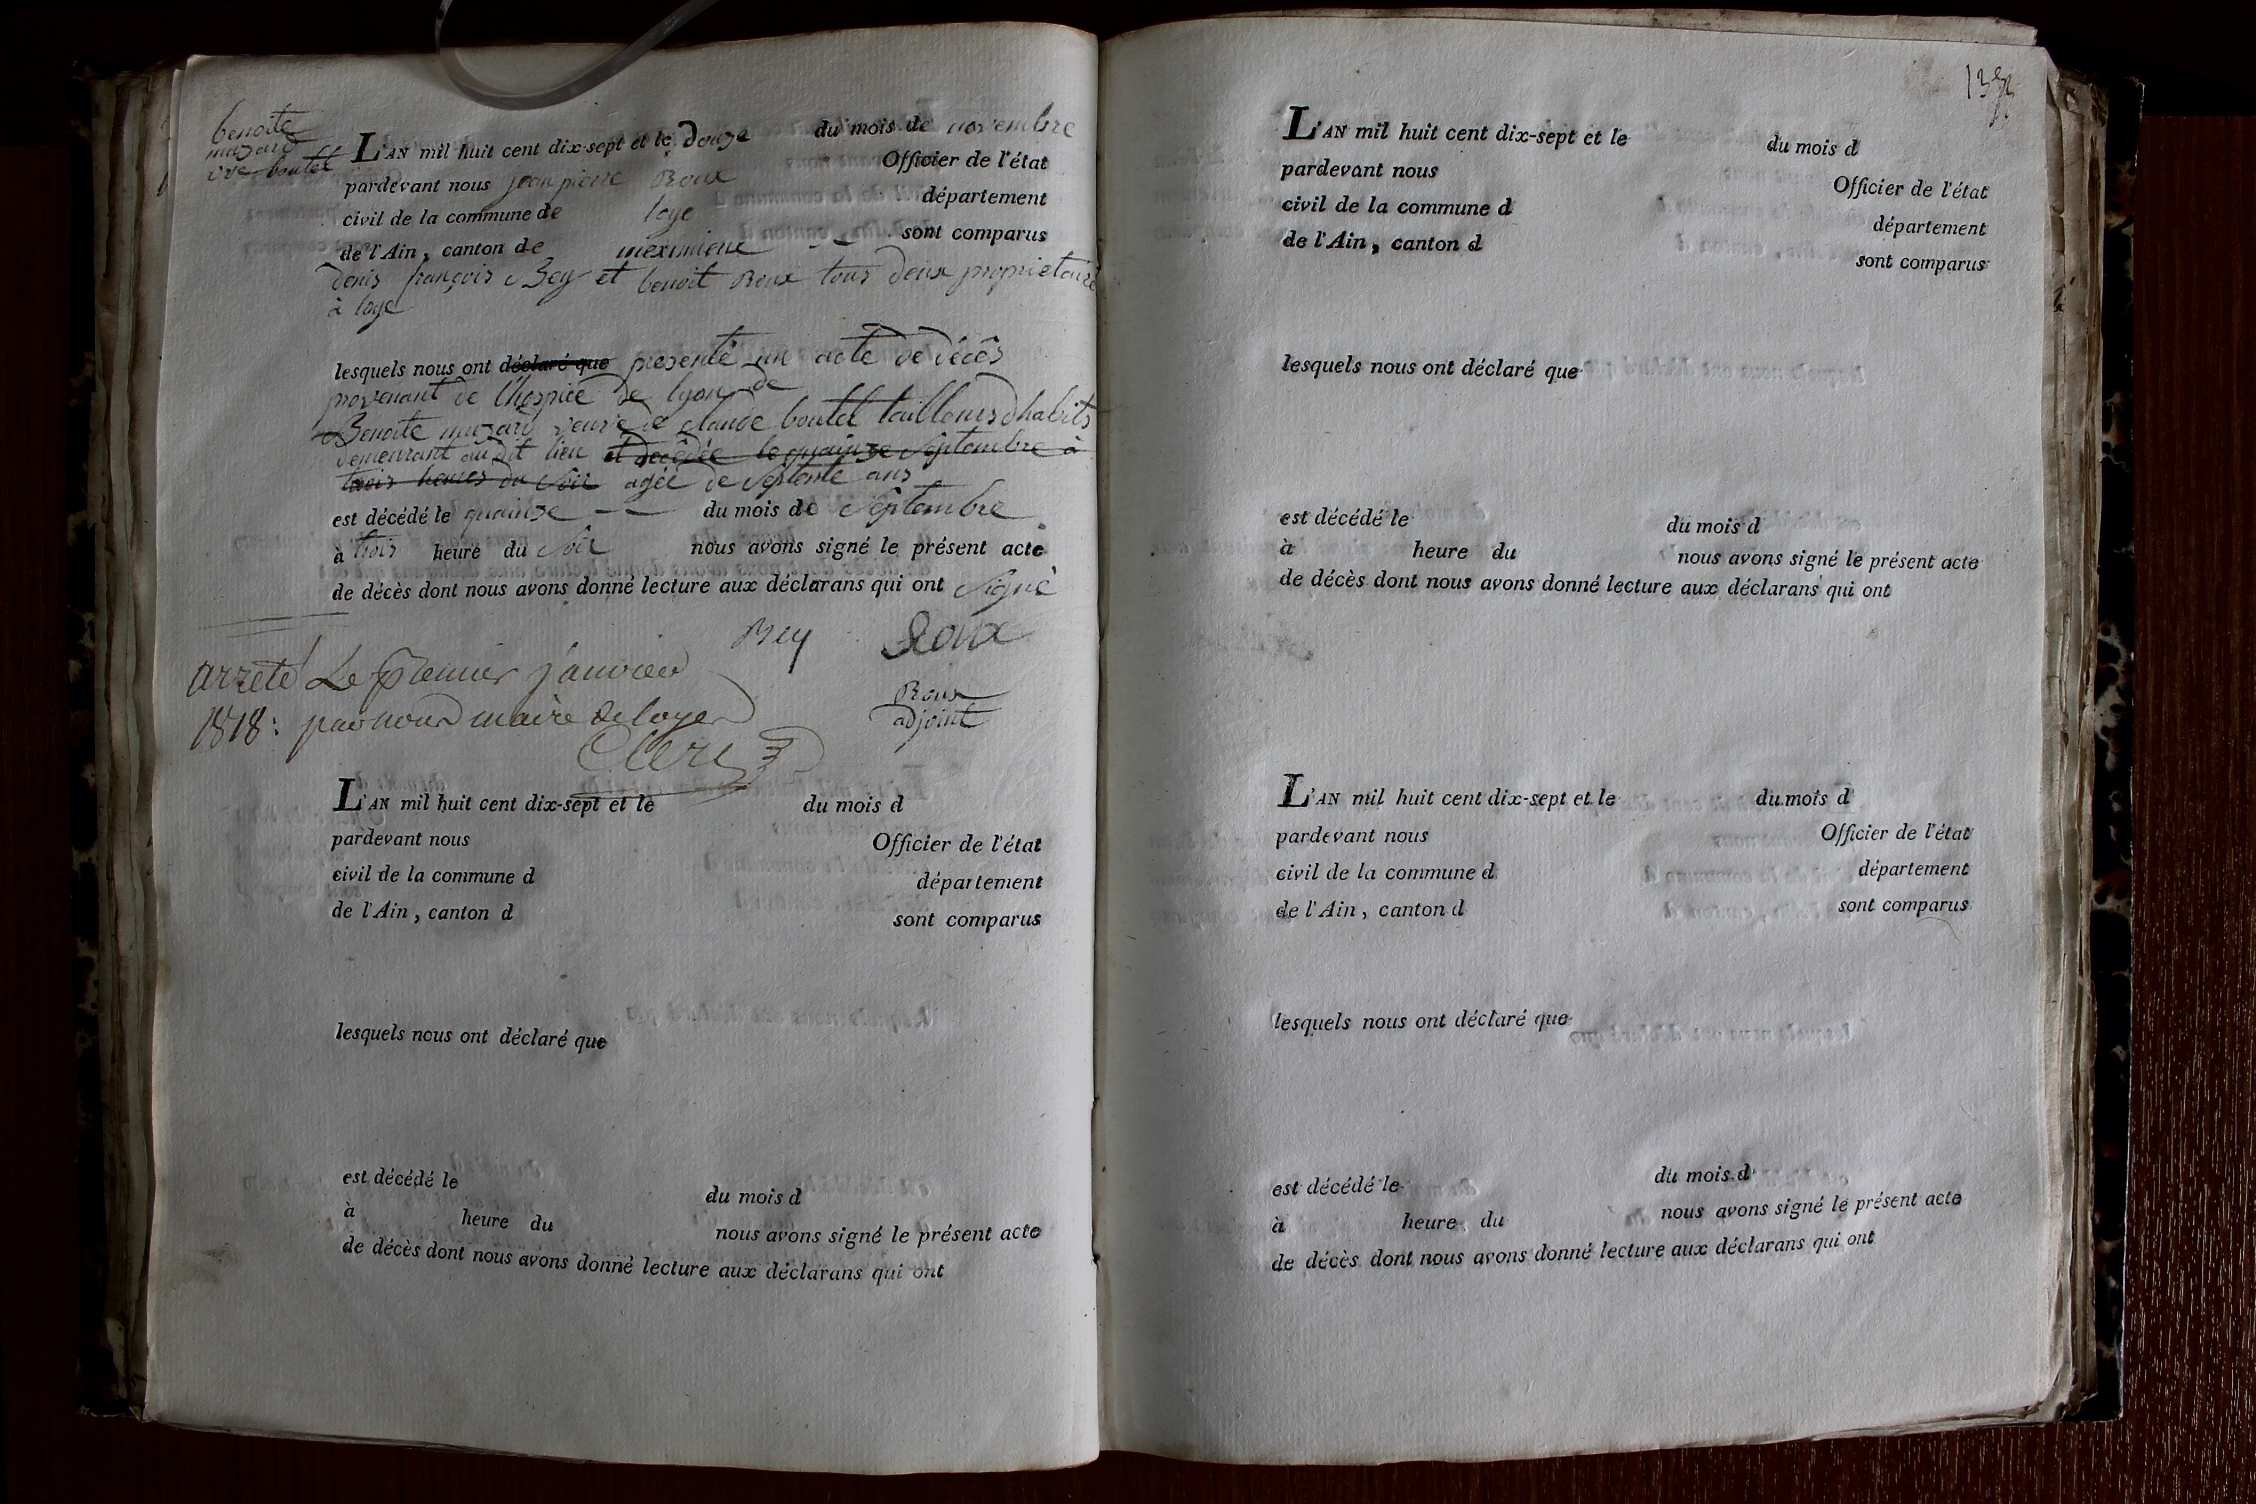 benoite
muzard
vve boutel
L'AN mil huit cent dix-sept et le Douze du mois de novembre
pardevant nous jean pierre Roux Officier de l'état
civil de la commune de loye département
de l'Ain, canton de meximieux sont comparus
denis françois Rey et benoit Roux tous deux proprietaire
à loye
lesquels nous ont déclaré que presenté un acte de décès
provenant de l'hospice de lyon de
Benoite muzard veuve de claude boutel tailleurs d'habits
demeurant au dit lieu et decedée le quainze Septembre à
trois heures du Soir agée de Septente ans
est décédé le quainze du mois de Septembre
à trois heure du Soir nous avons signé le présent acte
de décès dont nous avons donné lecture aux déclarans qui ont Signé
Rey Roux
arrete Le premier janvier
Roux
adjoint
1818: par nous maire de loyes
L'AN mil huit cent dix-sept et le du mois d
pardevant nous Officier de l'état
civil de la commune d département
de l'Ain, canton d sont comparus
lesquels nous ont déclaré que
est décédé le du mois d
à heure du nous avons signé le présent acte
de décès dont nous avons donné lecture aux déclarans qui ont
L'AN mil huit cent dix-sept et le du mois d
pardevant nous Officier de l'état
civil de la commune d département
de l'Ain, canton d sont comparus
lesquels nous ont déclaré que
est décédé le du mois d
à heure du nous avons signé le présent acte
de décès dont nous avons donné lecture aux déclarans qui ont
L'AN mil huit cent dix-sept et le du mois d
pardevant nous Officier de l'état
civil de la commune d département
de l'Ain, canton d sont comparus
lesquels nous ont déclaré que
est décédé le du mois d
à heure du nous avons signé le présent acte
de décès dont nous avons donné lecture aux déclarans qui ont